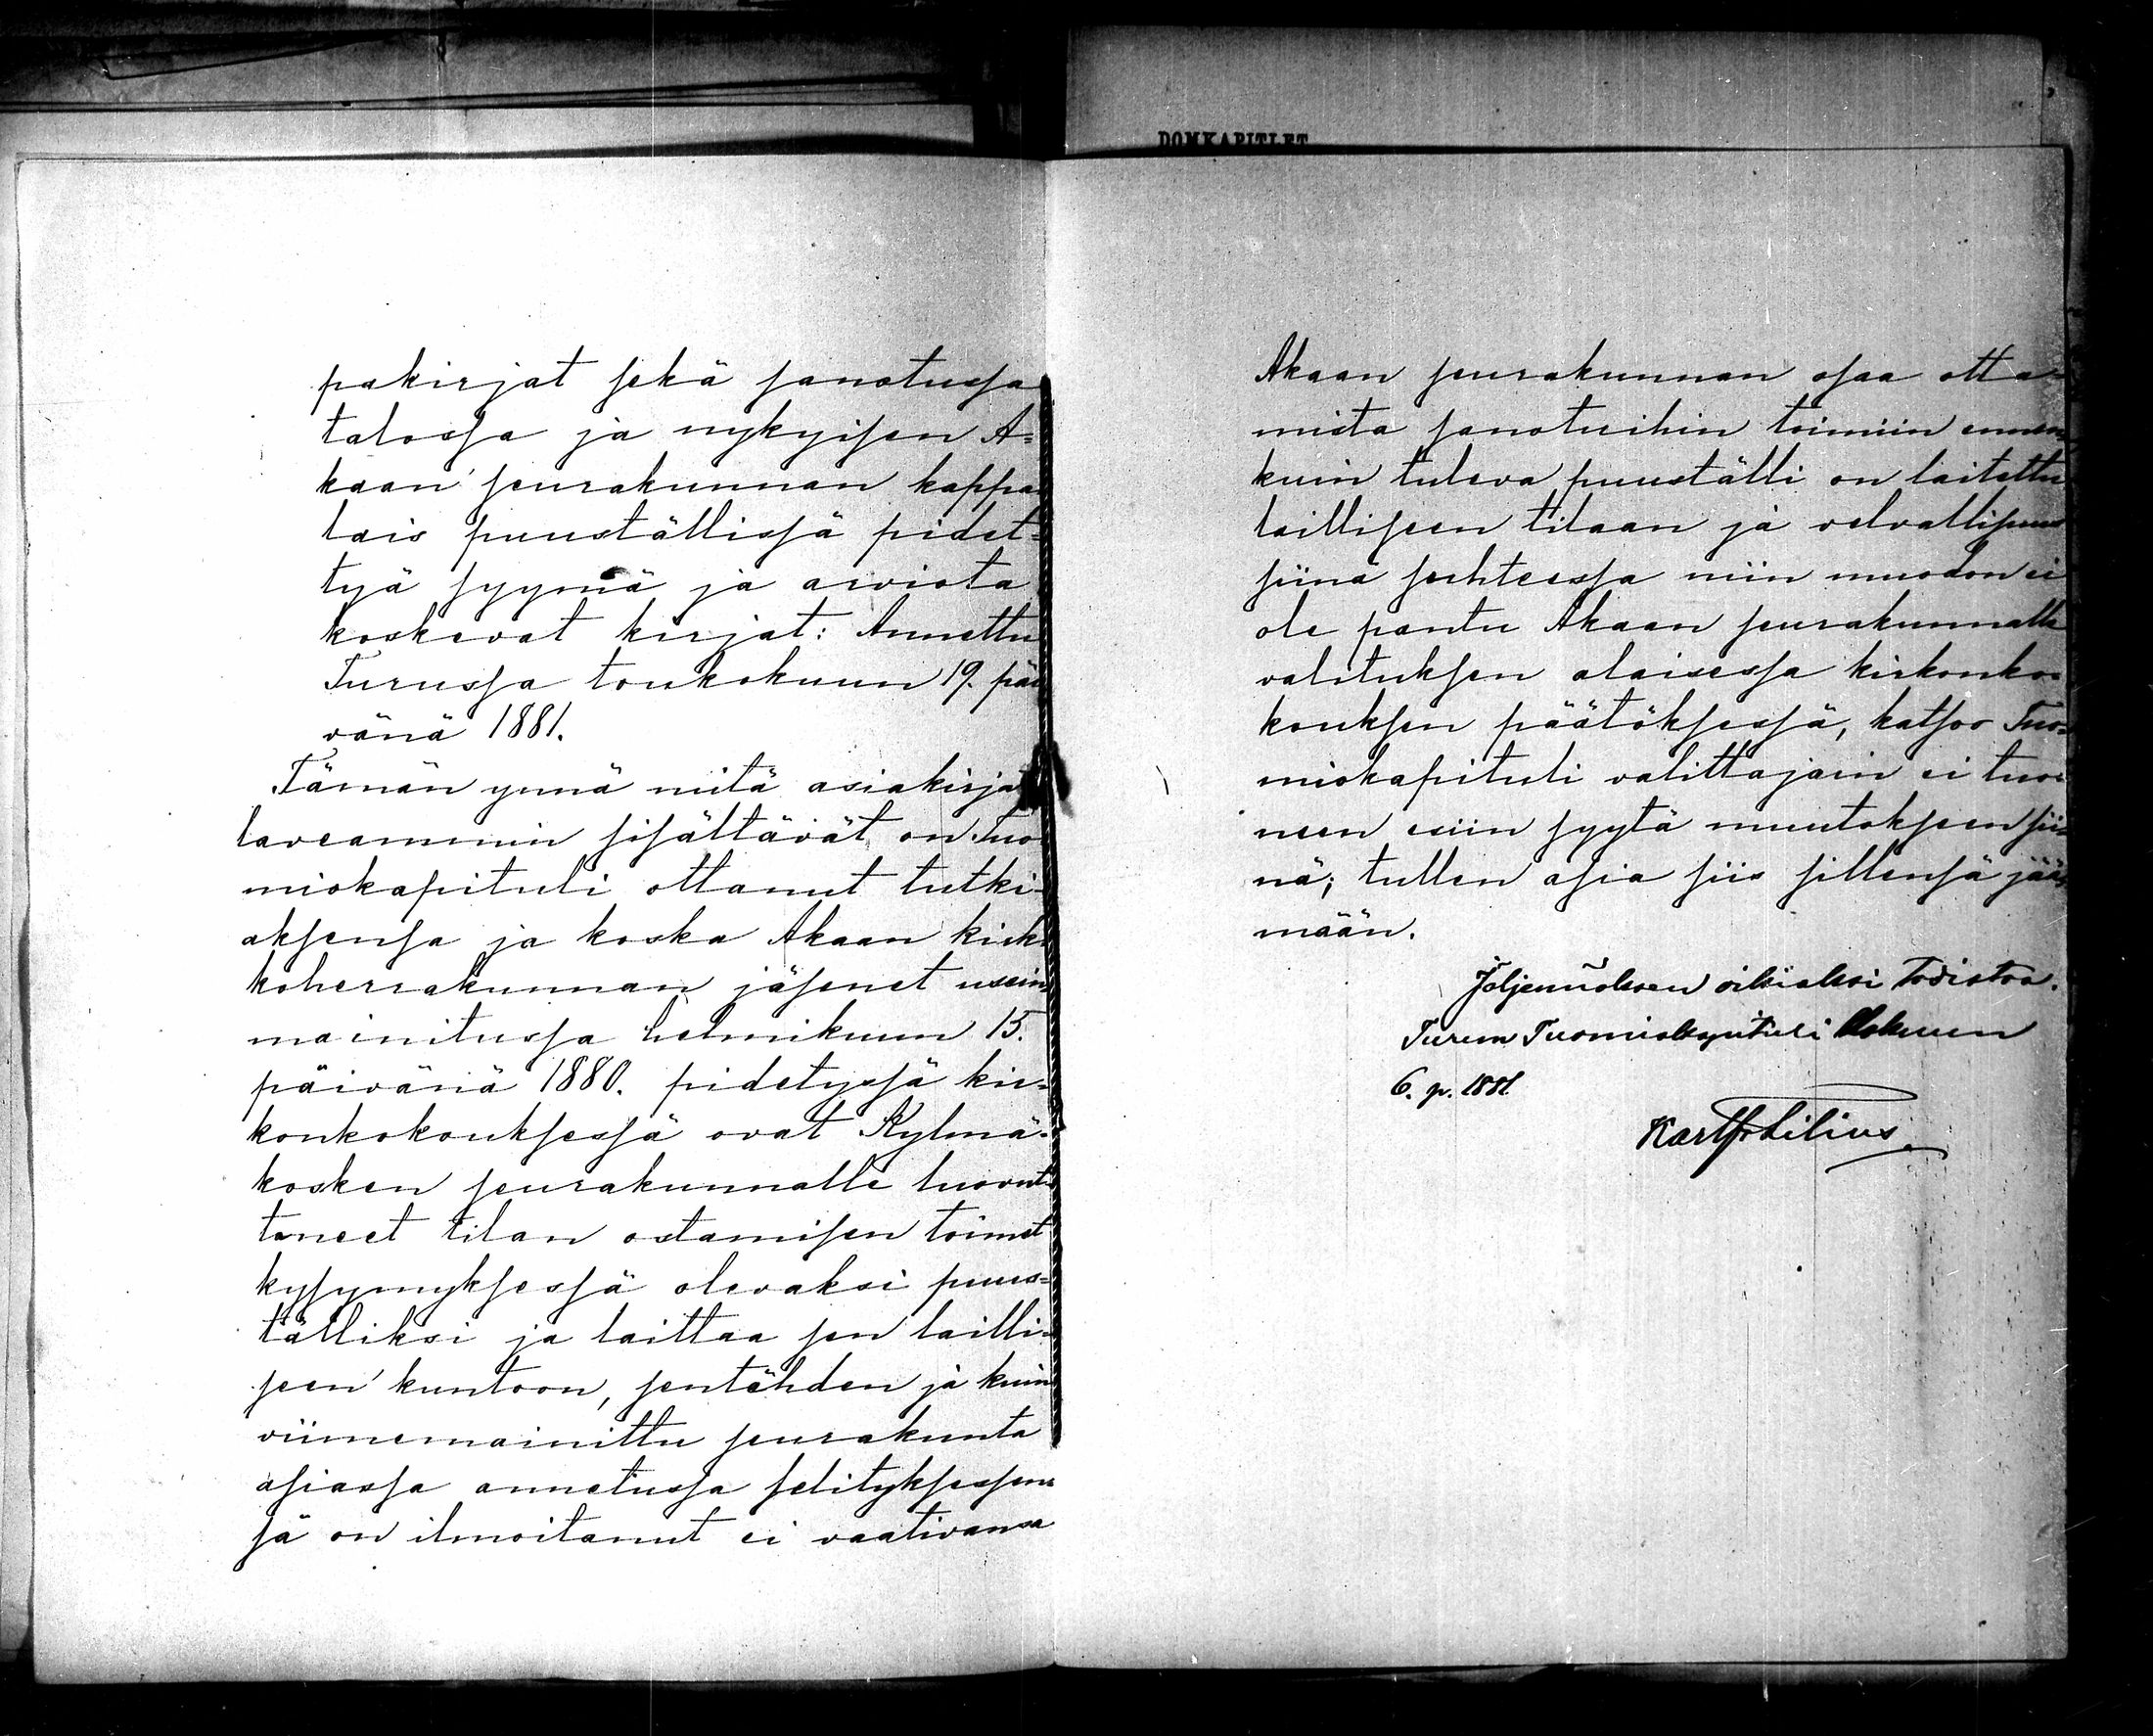 DOMKAPITLET
pakirjat sekä sanotussa
talossa ja nykyisen A=
kaan seurakunnan kappa
lais puuställissä pidet=
tyä syyniä ja arviota
koskevat kirjat: Annettu
Turussa toukokuun 19. päi
vänä 1881.
Tämän ynnä mitä asiakirjat
laveammin sisältävät on Tuo
miokapituli ottanut tutki=
aksensa ja koska Akaan kirk
koherrakunnan jäsenet usein
mainitussa helmikuun 15.
päivänä 1880. pidetyssä kir=
konkokouksessä ovat Kylmä=
kosken seurakunnalle luovut
taneet tilan ostamisen toimet
kysymyksessä olevaksi puus=
tälliksi ja laittaa sen lailli=
seen kuntoon, sentähden ja kuin
viimemainittu seurakunta
asiassa annetussa selityksessen
sä on ilmoitanut ei vaativansa
Akaan seurakunnan osaa otta=
mista sanotuihin toimiin ennen
kuin tuleva puuställi on laitettu
lailliseen tilaan ja velvallisuus
siinä suhteessa niin muodon ei
ole pantu Akaan seurakunnalle
valituksen alaisessa kirkonko=
kouksen päätöksessä, katsoo Tuo=
miokapituli valittajain ei tuo=
neen esiin syytä muutokseen sii=
nä; tullen asia siis sillensä jää=
mään.
Jäljennöksen oikiaksi todistaa.
Turun Tuomiokapituli Elokuun
6. p. 1881.
Lilius